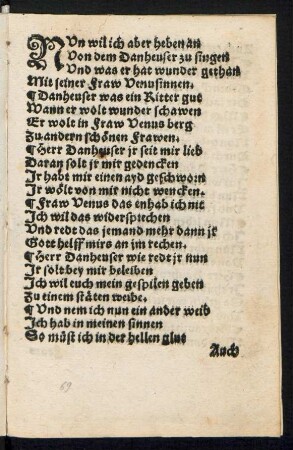 NUn wil ich aber heben an
Von dem Danheuser zu singen
Vnd was er hat wunder gethan
Mit seiner Fraw Venusinnen.
¶ Danheuser was ein Ritter gut
Wann er wolt wunder schawen
Er wolt in Fraw Venus berg
Zu andern schönen Frawen.
¶ Herr Danheuser jr seit mir lieb
Daran solt jr mir gedencken
Jr habt mir einen ayd geschworn
Jr wölt von mir nicht wencken.
¶ Fraw Venus das enhab ich nit
Ich wil das widersprechen
Vnd redt das jemand mehr dann jr
Gott helff mirs an jm rechen.
¶ Herr Danheuser wie redt jr nun
Jr solt bey mir beleiben
Ich wil euch mein gespilen geben
Zu einem stäten weibe.
¶ Vnd nem ich nun ein ander weib
Ich hab in meinen sinnen
So müst ich in der hellen glut
Auch
69